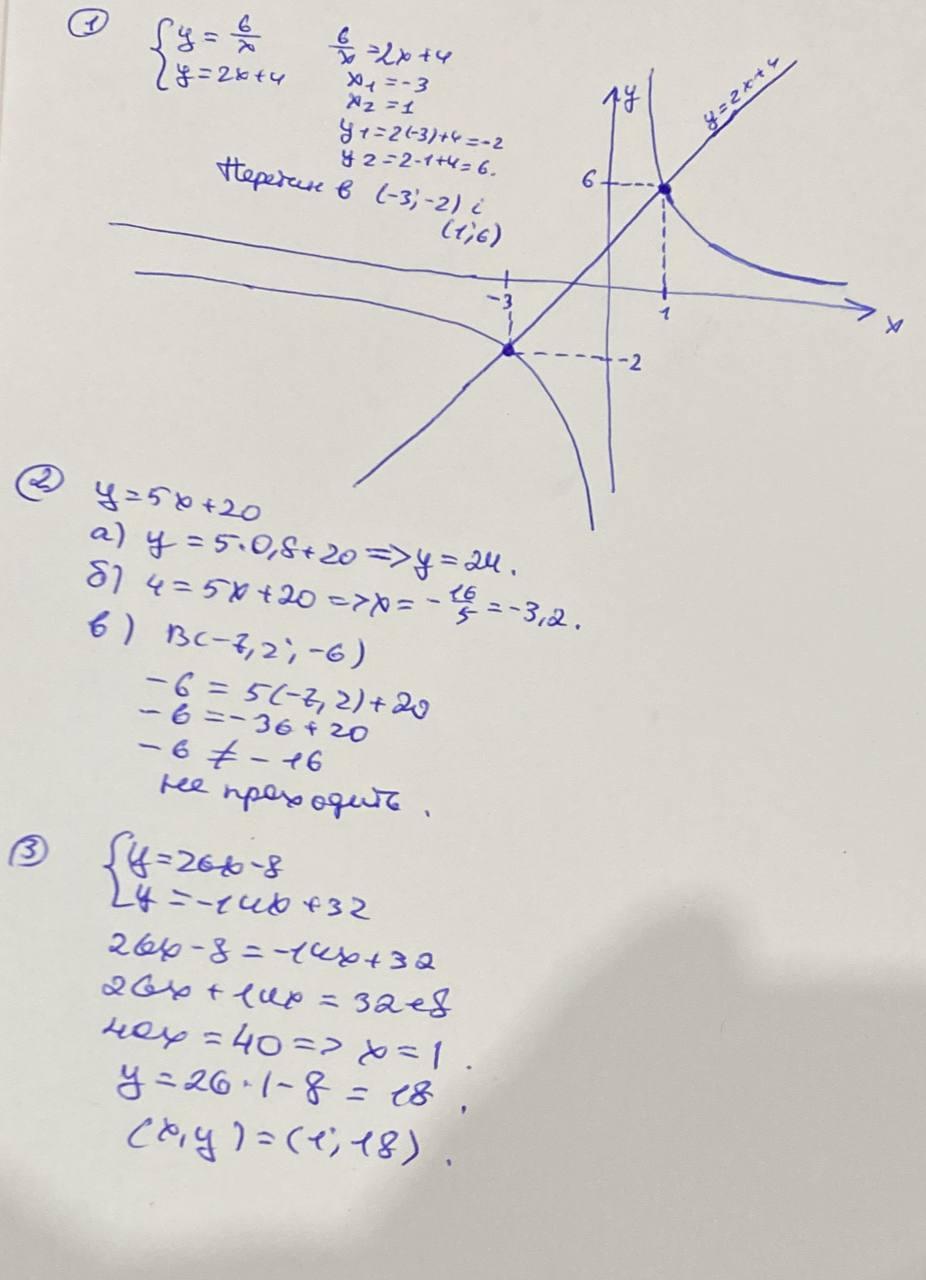 ① { y = 6/x
y = 2x+4
6/x = 2x+4
x₁ = -3
x₂ = 1
y1 = 2(-3)+4 = -2
y2 = 2·1+4 = 6.
Перетин в (-3; -2) і
(1; 6)
y
y=2x+4
6
-3
1
x
-2
② y = 5x+20
а) y = 5·0,8+20 => y = 24.
б) 4 = 5x+20 => x = -16/5 = -3,2.
в) B(-7,2; -6)
-6 = 5(-7,2)+20
-6 = -36+20
-6 ≠ -16
не проходить.
③ { y = 26x-8
y = -14x+32
26x-8 = -14x+32
26x+14x = 32+8
40x = 40 => x = 1.
y = 26·1-8 = 18.
(x,y) = (1; 18).